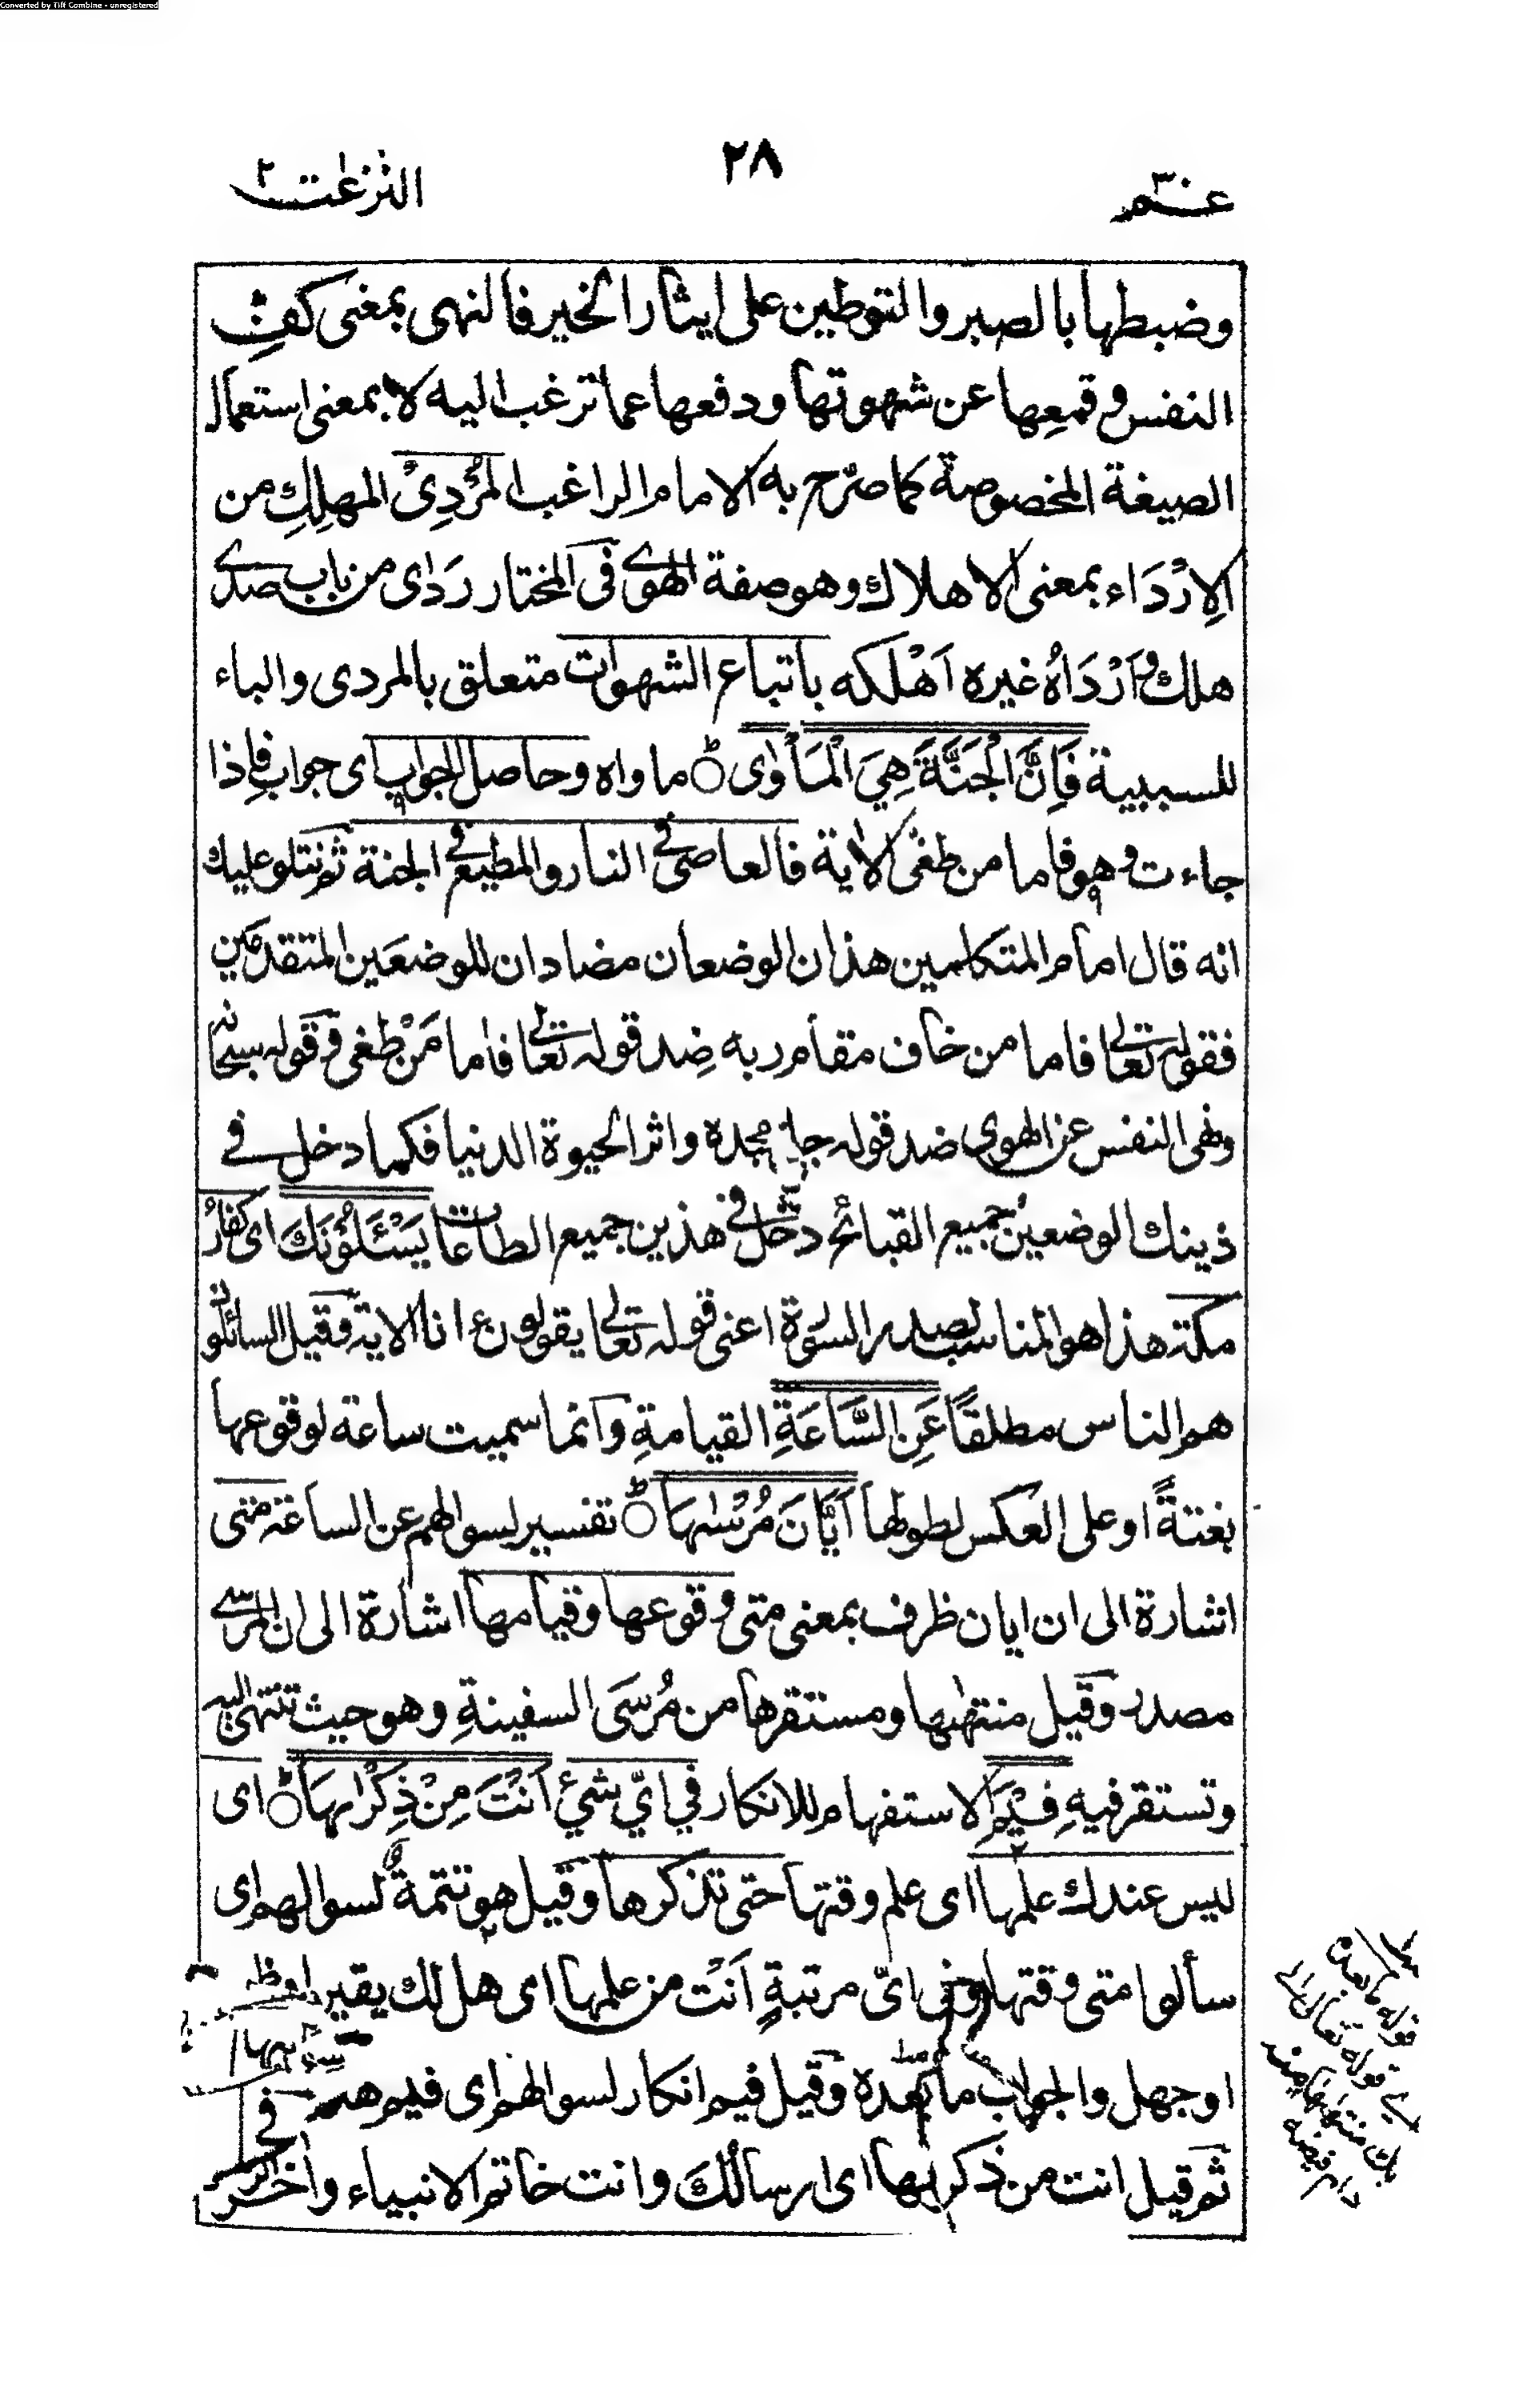 Converted by Tiff Combine - unregistered
عم ٣٠
٢٨
النزعٰت ٢
وضبطها بالصبر والتوطين على ايثار الخير فالنهى بمعنى كفِّ
النفس وقمعِها عن شهوتها ودفعها عما ترغب اليه لا بمعنى استعمال
الصيغة المخصوصة كما صرّح به الامام الراغب المُرْدِىْ المهلِكِ من
الاِرْدَاء بمعنى الاهلاك وهو صفة الهوى فى المختار رَدٰى من باب صدى
هلك وَاَرْدَاهُ غيره اَهْلَكه باتباع الشهوات متعلق بالمردى والباء
للسببية فَاِنَّ الْجَنَّةَ هِيَ الْمَأْوٰى ؕ ماواه وحاصل الجواب اى جواب فاِذا
جاءت وهو فاما من طغٰى الاٰية فالعاصى فى النار والمطيع فى الجنة ثم نتلو عليك
انه قال امام المتكلمين هذان الوضعان مضادان للوضعَين المتقدمَين
فقوله تعالى فاما من خاف مقام ربه ضِد قوله تعالى فاما مَنْ طغى وقوله سبحانه
ونهى النفس عن الهوى ضد قوله جل مجده واثر الحيوة الدنيا فكما دخل فى
ذينك الوضعين جميع القبائح دخل فى هذين جميع الطاعات يَسْـَٔلُوْنَكَ اى كفارُ
مكة هذا هو المناسب لصدر السورة اعنى قوله تعالى يقولون ءانا الاية وقيل السائلون
هم الناس مطلقًا عَنِ السَّاعَةِ القيامةِ وانما سميت ساعة لوقوعها
بغتةً او على العكس لطولها اَيَّانَ مُرْسٰىهَا ؕ تفسير لسوالهم عن الساعة متى
اشارة الى ان ايان ظرف بمعنى متى وقوعها وقيامها اشارة الى ان المرسى
مصدر وقيل منتهٰىها ومستقرها من مُرسَى السفينةِ وهو حيث تنتهى اليه
وتستقر فيهِ فِيْمَ الاستفهام للانكار في ايّ شيْءٍ اَنْتَ مِنْ ذِكْرٰىهَا ؕ اى
ليس عندك علمها اى علم وقتها حتى تذكرها وقيل هو تتمةٌ لسوالهم اى
سألوا متى وقتها وفى اىّ مرتبةٍ اَنْتَ من علمها اى هل لك يقين او ظن
او جهل والجواب ما بعده وقيل فيم انكار لسوالهم اى فيم هم فى
ثم قيل انت من ذكرٰىها اى ارسالُكَ وانت خاتم الانبياء واٰخر